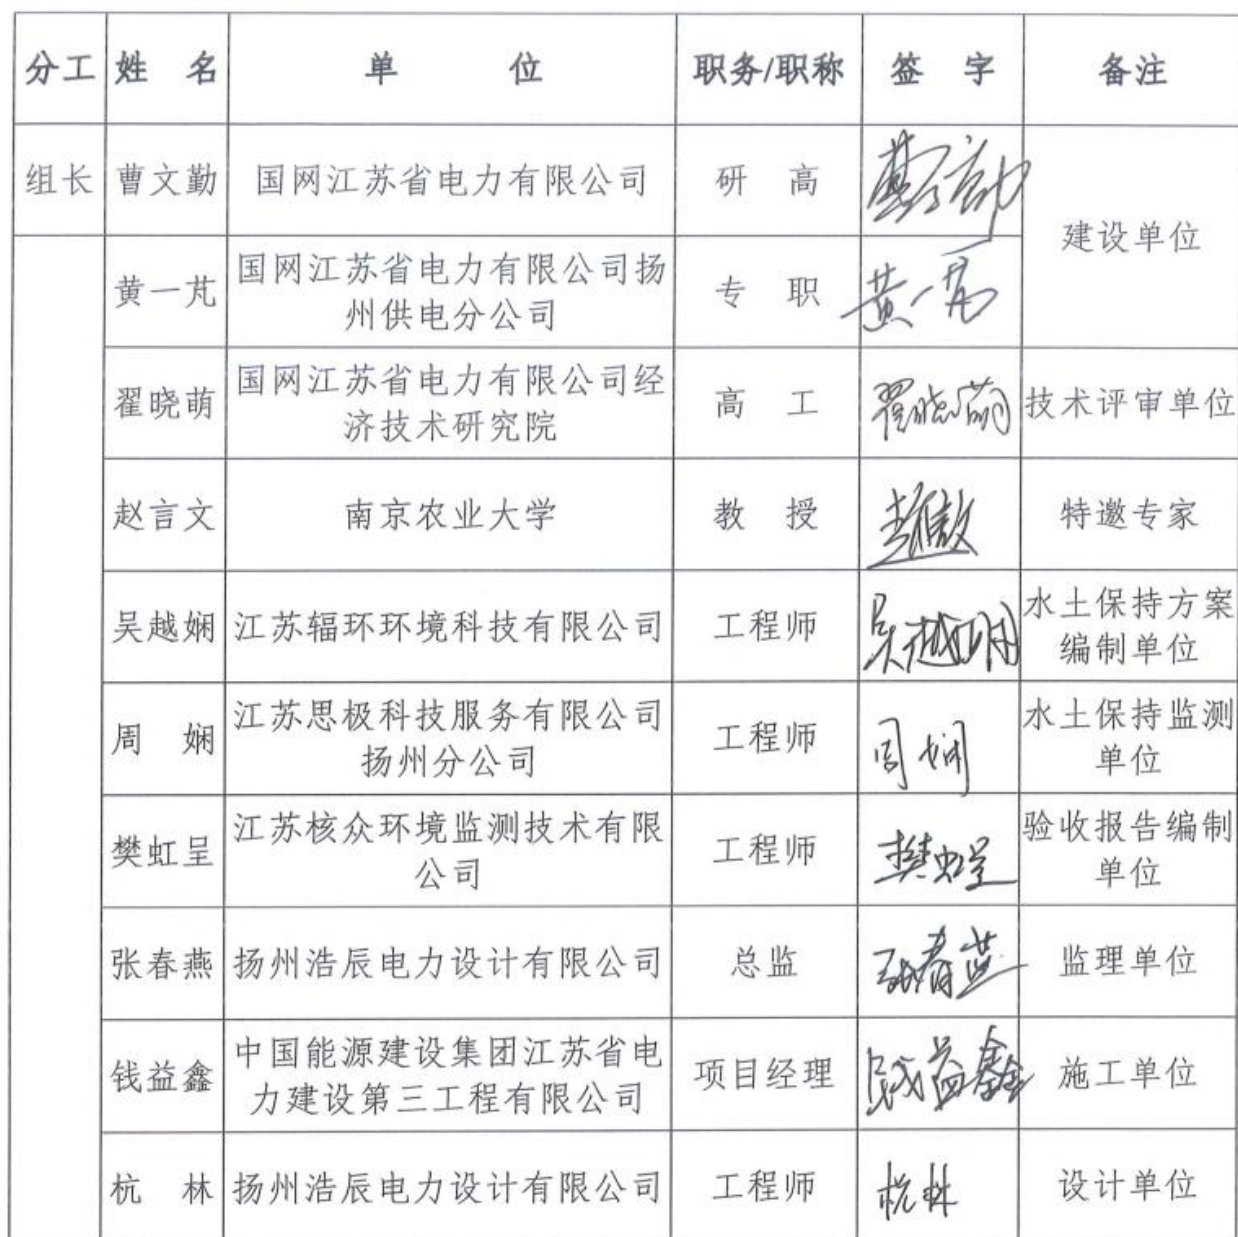 分工 姓 名 单 位 职务/职称 签 字 备注
组长 曹文勤 国网江苏省电力有限公司 研 高
建设单位
黄一芃 国网江苏省电力有限公司扬
州供电分公司 专 职 黄一芃
翟晓萌 国网江苏省电力有限公司经
济技术研究院 高 工 翟晓萌 技术评审单位
赵言文 南京农业大学 教 授 特邀专家
吴越娴 江苏辐环环境科技有限公司 工程师 吴越娴 水土保持方案
编制单位
周 娴 江苏思极科技服务有限公司
扬州分公司 工程师 周娴 水土保持监测
单位
樊虹呈 江苏核众环境监测技术有限
公司 工程师 樊虹呈 验收报告编制
单位
张春燕 扬州浩辰电力设计有限公司 总监 监理单位
钱益鑫 中国能源建设集团江苏省电
力建设第三工程有限公司 项目经理 钱益鑫 施工单位
杭 林 扬州浩辰电力设计有限公司 工程师 杭林 设计单位